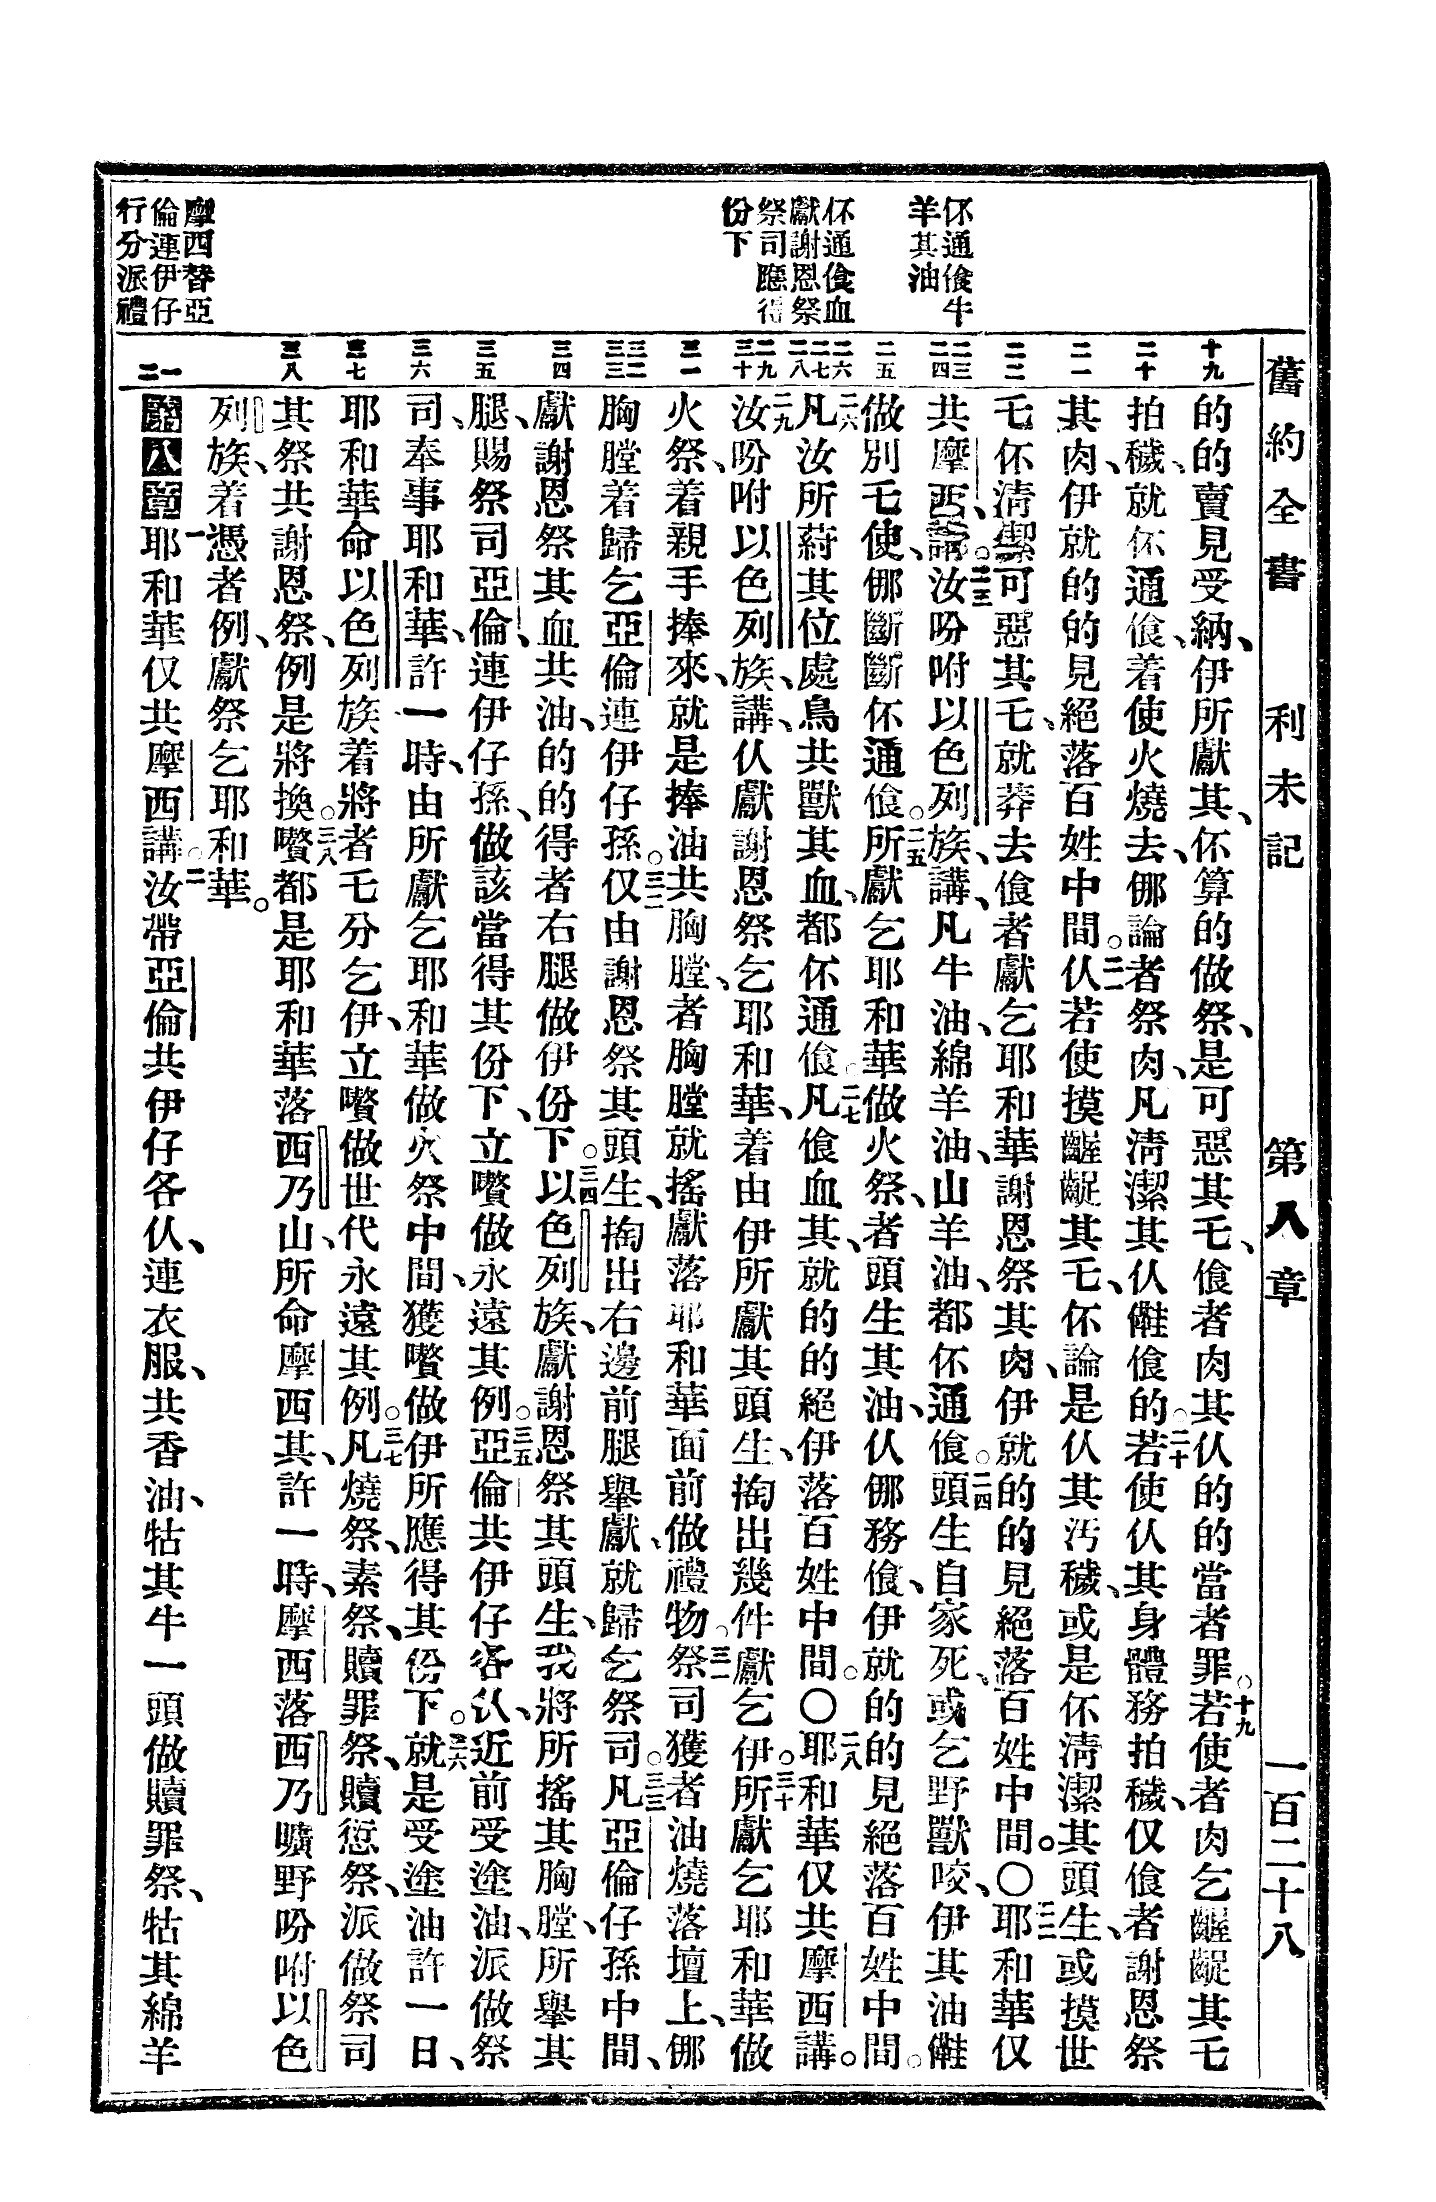 舊約全書　利未記　第八章　一百二十八
伓通食牛
羊其油
伓通食血
獻謝恩祭
祭司應得
份下
摩西替亞
倫連伊仔
行分派禮
十九
二十
二一
二二
二三
二四
二五
二六
二七
二八
二九
三十
三一
三二
三三
三四
三五
三六
三七
三八
一
二
的的賣見受納、伊所獻其、伓算的做祭、是可惡其乇、飡者肉其仈的的當者罪。十九若使者肉乞齷齪其乇
拍穢、就伓通飡、着使火燒去、㑚論者祭肉、凡清潔其仈、𠆧飡的。二十若使仈其身體務拍穢、仅飡者謝恩祭
其肉、伊就的的見絕落百姓中間。二一仈若使摸齷齪其乇、伓論是仈其污穢、或是伓清潔其頭生、或摸世
乇伓清潔可惡其乇、就莽去飡者獻乞耶和華謝恩祭其肉、伊就的的見絕落百姓中間。〇二二耶和華仅
共摩西講。二三汝吩咐以色列族講、凡牛油、綿羊油、山羊油、都伓通飡。二四頭生自家死、或乞野獸咬、伊其油𠆧
做別乇使、㑚斷斷伓通飡。二五所獻乞耶和華做火祭、者頭生其油、仈㑚務飡、伊就的的見絕落百姓中間。
二六凡汝所蒔其位處、鳥共獸其血、都伓通飡。二七凡飡血其、就的的絕伊落百姓中間。〇二八耶和華仅共摩西講。
二九汝吩咐以色列族講、仈獻謝恩祭乞耶和華、着由伊所獻其頭生、掏出幾件獻乞伊。三十所獻乞耶和華做
火祭、着親手捧來、就是捧油共胸膛、者胸膛就搖獻落耶和華面前做禮物。三一祭司獲者油燒落壇上、㑚
胸膛着歸乞亞倫連伊仔孫。三二仅由謝恩祭其頭生、掏出右邊前腿舉獻、就歸乞祭司。三三凡亞倫仔孫中間、
獻謝恩祭其血共油、的的得者右腿做伊份下。三四以色列族、獻謝恩祭其頭生、我將所搖其胸膛、所舉其
腿、賜祭司亞倫、連伊仔孫、做該當得其份下、立嚽做永遠其例。三五亞倫共伊仔各仈、近前受塗油、派做祭
司、奉事耶和華、許一時、由所獻乞耶和華做火祭中間、獲嚽做伊所應得其份下。三六就是受塗油許一日、
耶和華命以色列族着將者乇分乞伊、立嚽做世代永遠其例。三七凡燒祭、素祭、贖罪祭、贖愆祭、派做祭司
其祭、共謝恩祭、例是將換。三八嚽都是耶和華落西乃山、所命摩西其、許一時、摩西落西乃曠野吩咐以色
列族、着憑者例、獻祭乞耶和華。
第八章一耶和華仅共摩西講。二汝帶亞倫共伊仔各仈、連衣服、共香油、牯其牛一頭做贖罪祭、牯其綿羊